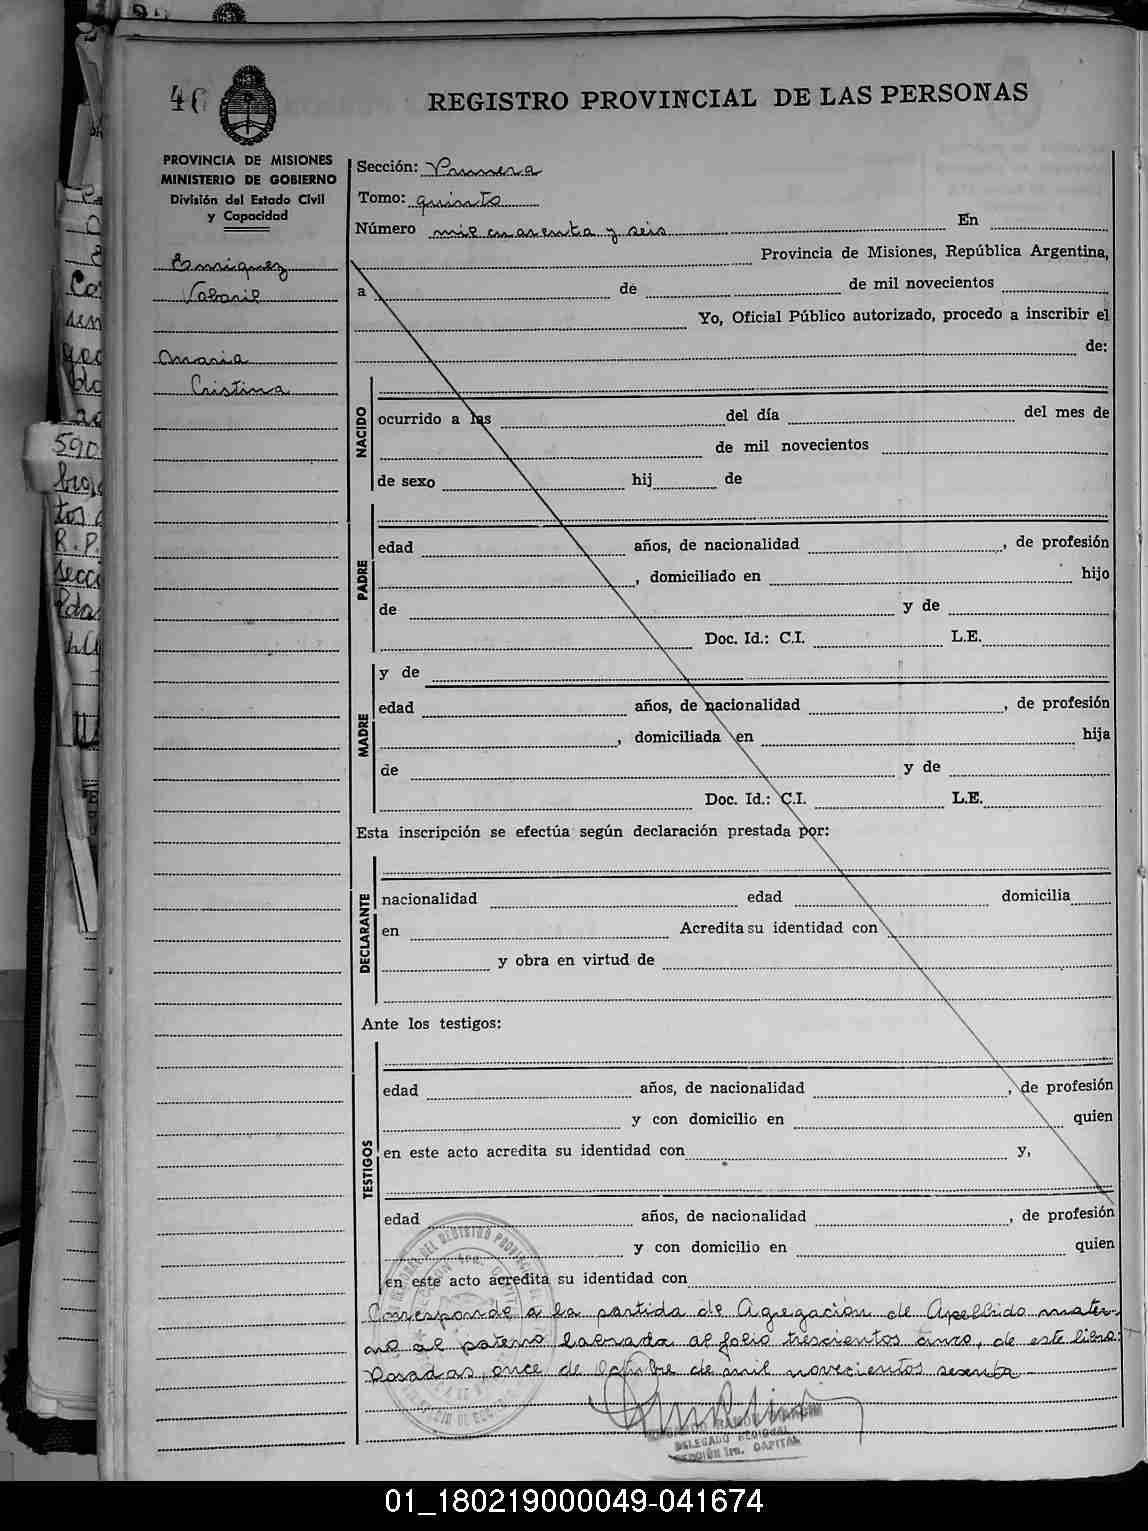 46
REGISTRO PROVINCIAL DE LAS PERSONAS
PROVINCIA DE MISIONES
MINISTERIO DE GOBIERNO
División del Estado Civil
y Capacidad
Enriquez
Maria
Cristina
Sección: Primera
Tomo: quinto
Número mil cuarenta y seis En
Provincia de Misiones, República Argentina,
a de de mil novecientos
Yo, Oficial Público autorizado, procedo a inscribir el
de:
NACIDO
ocurrido a las del día del mes de
de mil novecientos
de sexo hij de
PADRE
edad años, de nacionalidad , de profesión
, domiciliado en hijo
de y de
Doc. Id.: C.I. L.E.
MADRE
y de
edad años, de nacionalidad , de profesión
, domiciliada en hija
de y de
Doc. Id.: C.I. L.E.
Esta inscripción se efectúa según declaración prestada por:
DECLARANTE
nacionalidad edad domicilia
en Acredita su identidad con
y obra en virtud de
Ante los testigos:
TESTIGOS
edad años, de nacionalidad , de profesión
y con domicilio en quien
en este acto acredita su identidad con y,
edad años, de nacionalidad , de profesión
y con domicilio en quien
en este acto acredita su identidad con
Corresponde a la partida de Agregación de Apellido mater-
no al paterno labrada al folio trescientos cinco, de este libro.
Posadas, once de Octubre de mil novecientos sesenta
RAMON
DELEGADO REGIONAL
SECCIÓN 1ra. CAPITAL
590
R.P.
01_180219000049-041674